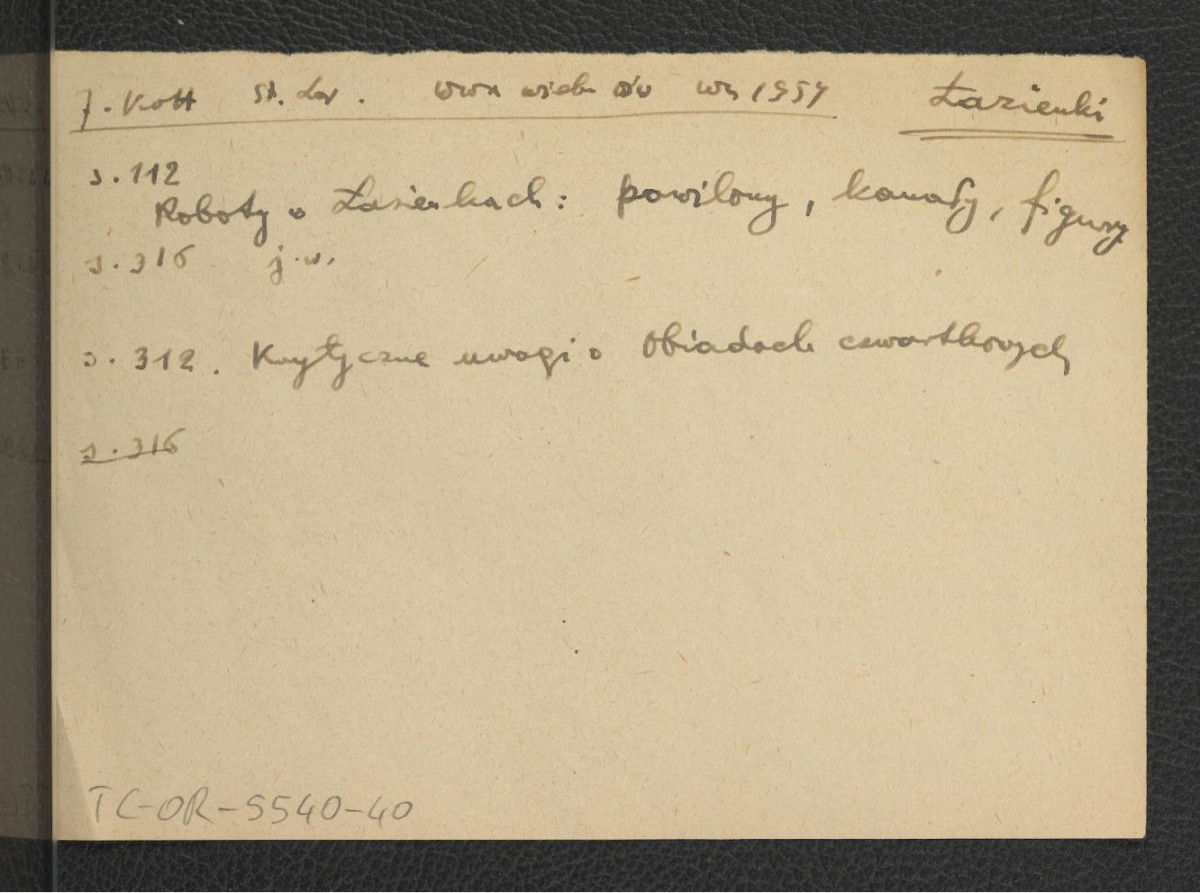 J. Kott St. Lor. Wwa 1954 Łazienki
s. 112
Roboty w Łazienkach: pawilony, kanały, figury
s. 316 j.w.
s. 312. Krytyczne uwagi o Obiadach czwartkowych
s. 316
TC-OR-5540-40